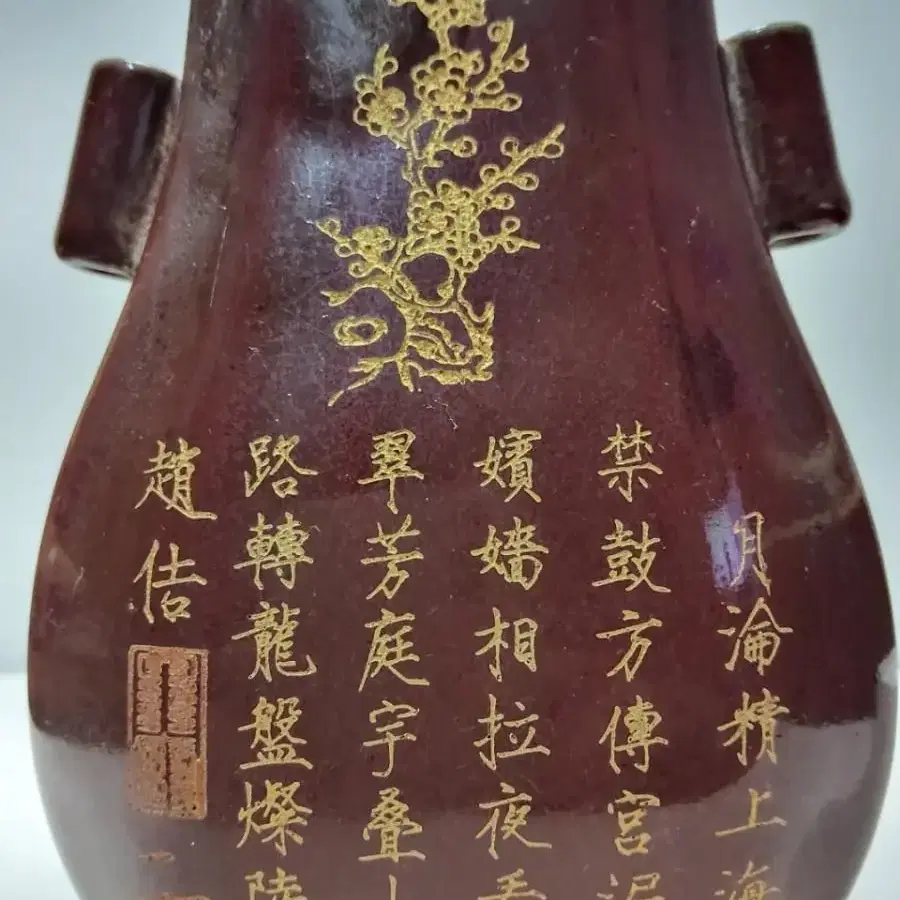 月淪精上海
禁鼓方傳宮
嬪嬙相拉夜
翠芳庭宇叠
路轉龍盤燦陸
趙佶